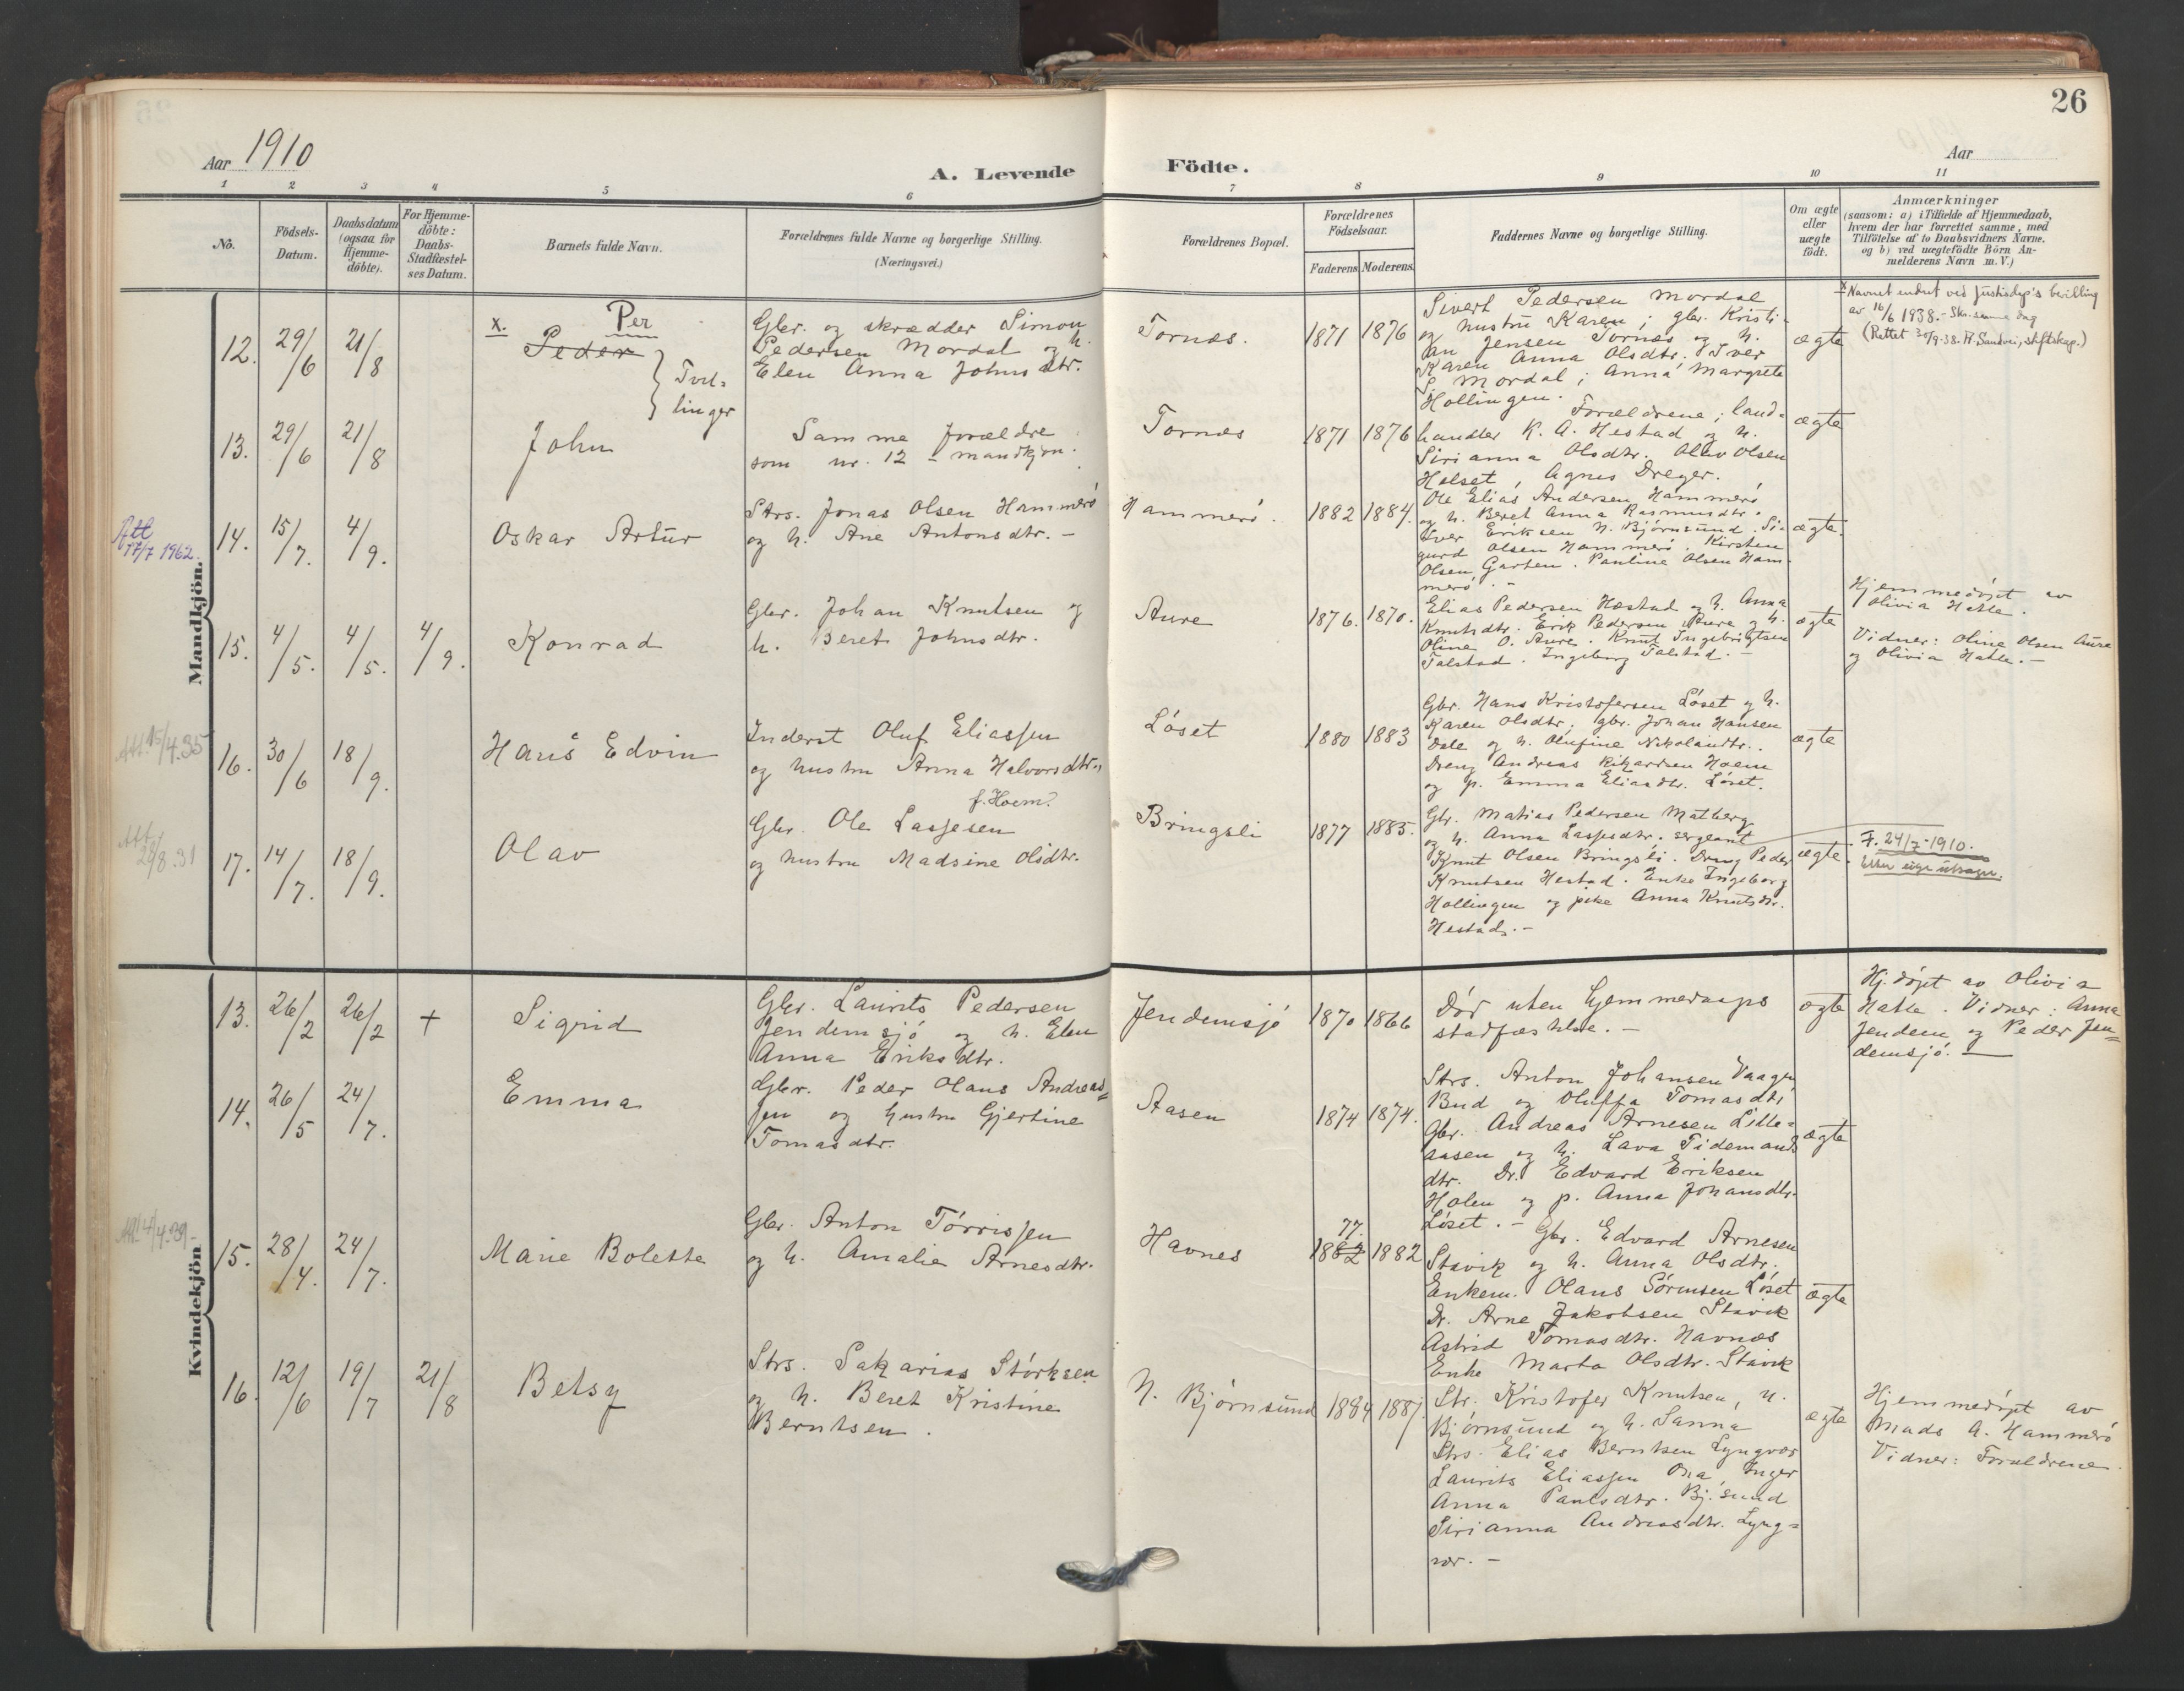 26
Aar 1910
A. Levende Födte.
Aar
1 2 3 4 5 6 7 8 9 10 11
Nô.
Födsels-
Datum.
Daabsdatum
(ogsaa for
Hjemme-
döbte).
For Hjemme-
döbte:
Daabs-
Stadfæstel-
ses Datum.
Barnets fulde Navn.
Forældrenes fulde Navne og borgerlige Stilling.
(Næringsvei.)
Forældrenes Bopæl.
Forældrenes
Födselsaar.
Faderens Moderens
Faddernes Navne og borgerlige Stilling.
Om ægte
eller
uægte
födt.
Anmærkninger
(saasom: a) i Tilfælde af Hjemmedaab,
hvem der har forrettet samme, med
Tilföielse af to Daabsvidners Navne.
og b) ved uægtefödte Börn An-
melderens Navn m. V.)
Mandkjön.
12. 29/6 21/8
x. Per
Peder
Tvil-
linger
Gbr. og skrædder Simon
Pedersen Mordal og h.
Elen Anna Johnsdtr.
Tornes. 1871 1876
Sivert Pedersen Mordal
og hustru Karen; gbr. Kristi-
an Jensen Tornes og h.
Karen Anna Olsdtr. Iver
S. Mordal; Anna Margrete
Hollingen.
ægte
x Navnet endret ved Justisdep's bevilling
av 16/6 1938. - Skr. samme dag
(Rettet 30/9-38. H. Sandvei, stiftskap.)
13. 29/6 21/8
John
Samme forældre
som nr. 12 - mandkjøn.
Tornes 1871 1876
Forældrene; land-
handler K. A. Hestad og h.
Sirianna Olsdtr. Olav Olsen
Helset, Agnes Dreyer.
ægte
Att
17/7 1962.
14. 15/7. 4/9.
Oskar Artur
Strs. Jonas Olsen Hammerö
og h. Ane Antonsdtr. -
Hammerö. 1882 1884.
Ole Elias Andersen Hammerö
og h. Beret Anna Rasmusdtr.
Iver Eriksen N. Björnsund. Si-
gurd Olsen Hammerö. Kirsten
Olsen Garten. Pauline Olsen Ham-
merö. -
ægte.
15. 4/5. 4/5. 4/9.
Konrad
Gbr. Johan Knutsen og
h. Beret Johnsdtr.
Aure 1876. 1870.
Elias Pedersen Hestad og h. Anna
Knutsdtr. Erik Pedersen Aure og h.
Oline O. Aure. Knut Ingebrigtsen
Talstad. Ingeborg Talstad. -
ægte
Hjemmedöpt av
Olivia Hatle.
Vidner: Oline Olsen Aure
og Olivia Hatle. -
Att. 15/4.35
16. 30/6 18/9.
Hans Edvin
Inderst Oluf Eliassen
og hustru Anna Halvorsdtr.,
f. Hoem.
Löset 1880 1883
Gbr. Hans Kristofersen Löset og h.
Karen Olsdtr. gbr. Johan Hansen
Dale og h. Olufine Nikolaidtr.
Dreng Andreas Rikardsen Hoem
og p. Emma Eliasdtr. Löset.
ægte
Att.
29/8.31
17. 14/7. 18/9.
Olav
Gbr. Ole Lassesen
og hustru Madsine Olsdtr.
Bringsli 1877 1885.
Gbr. Matias Pedersen Malberg
og h. Anna Lassesdtr. sergeant
Knut Olsen Bringsli. Dreng Peder
Knutsen Hestad. Enke Ingeborg
Hollingen og pike Anna Knutsdtr.
Hestad. -
ægte.
F. 24/7-1910.
Efter eige utsagn.
Kvindekjön
13. 26/2 26/2 +
Sigrid
Gbr. Laurits Pedersen
Jendemsjö og h. Elen
Anna Eriksdtr.
Jendemsjö 1870 1866
Död uten hjemmedaaps
stadfæstelse. -
ægte
Hj. döpt av Olivia
Hatle. Vidner: Anna
Jendem og Peder Jen-
demsjö. -
14. 26/5 24/7.
Emma
Gbr. Peder Olaus Andreas-
sen og hustru Gjertine
Tomasdtr.
Aasen 1874 1874.
Strs. Anton Johansen Vaagen,
Bud og Oluffa Tomasdtr
Gbr. Andreas Arnesen Lille-
aasen og h. Lava Tidemands
dtr. Dr. Edvard Eriksen
Holen og p. Anna Johansdtr.
Löset. -
ægte
Att 4/4.39-
15. 28/4. 24/7.
Marie Bolette
Gbr. Anton Törrissen
og h. Amalie Arnesdtr.
Havnes 77. 1882 1882
Gbr. Edvard Arnesen
Stavik og h. Anna Olsdtr.
Enkem. Olaus Sörensen Löset
Dr. Arne Jakobsen Stavik
Astrid Tomasdtr. Havnes
Enke Marta Olsdtr. Stavik
ægte
16. 12/6 19/7 21/8
Betsy
Strs. Sakarias Störksen
og h. Beret Kristine
Berntsen.
N. Björnsund 1884 1887.
Str. Kristofer Knutsen, N.
Björnsund og h. Sanna
Strs. Elias Berntsen Lyngvær
Laurits Eliassen Ona, Inger
Anna Paulsdtr. Bj.sund
Sirianna Andreasdtr. Lyng-
vær. -
ægte
Hjemmedöpt av
Mads A. Hammerö
Vidner: Forældrene.